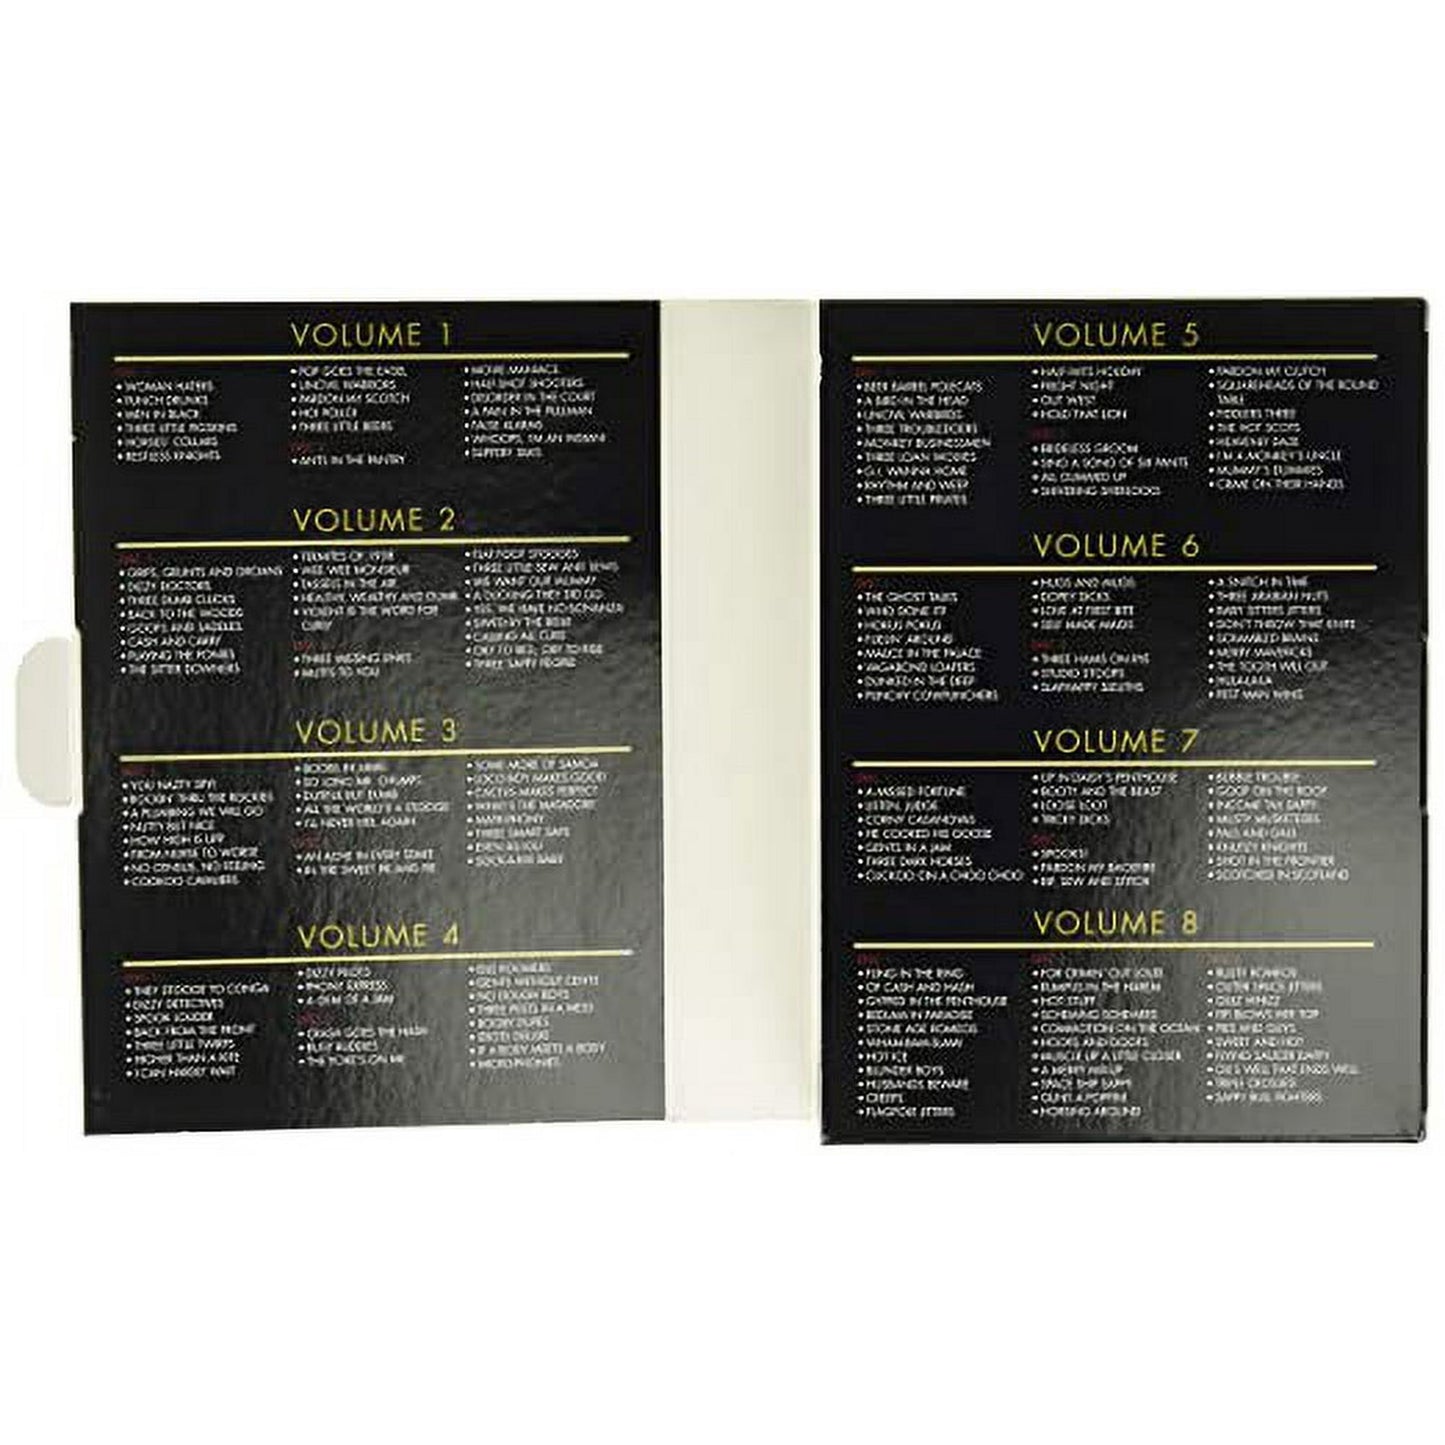 VOLUME 1
• WOMAN HATERS
• PUNCH DRUNKS
• MEN IN BLACK
• THREE LITTLE PIGSKINS
• HORSES' COLLARS
• RESTLESS KNIGHTS
• POP GOES THE EASEL
• UNCIVIL WARRIORS
• PARDON MY SCOTCH
• HOI POLLOI
• THREE LITTLE BEERS
• ANTS IN THE PANTRY
• MOVIE MANIACS
• HALF-SHOT SHOOTERS
• DISORDER IN THE COURT
• A PAIN IN THE PULLMAN
• FALSE ALARMS
• WHOOPS, I'M AN INDIAN!
• SLIPPERY SILKS
VOLUME 2
• GRIPS, GRUNTS AND GROANS
• DIZZY DOCTORS
• THREE DUMB CLUCKS
• BACK TO THE WOODS
• GOOFS AND SADDLES
• CASH AND CARRY
• PLAYING THE PONIES
• THE SITTER DOWNERS
• TERMITES OF 1938
• WEE WEE MONSIEUR
• TASSELS IN THE AIR
• HEALTHY, WEALTHY AND DUMB
• VIOLENT IS THE WORD FOR
CURLY
• THREE MISSING LINKS
• MUTTS TO YOU
• FLAT FOOT STOOGES
• THREE LITTLE SEW AND SEWS
• WE WANT OUR MUMMY
• A DUCKING THEY DID GO
• YES, WE HAVE NO BONANZA
• SAVED BY THE BELLE
• CALLING ALL CURS
• OILY TO BED, OILY TO RISE
• THREE SAPPY PEOPLE
VOLUME 3
• YOU NAZTY SPY!
• ROCKIN' THRU THE ROCKIES
• A PLUMBING WE WILL GO
• NUTTY BUT NICE
• HOW HIGH IS UP?
• FROM NURSE TO WORSE
• NO CENSUS, NO FEELING
• COOKOO CAVALIERS
• BOOBS IN ARMS
• SO LONG MR. CHUMPS
• DUTIFUL BUT DUMB
• ALL THE WORLD'S A STOOGE
• I'LL NEVER HEIL AGAIN
• AN ACHE IN EVERY STAKE
• IN THE SWEET PIE AND PIE
• SOME MORE OF SAMOA
• LOCO BOY MAKES GOOD
• CACTUS MAKES PERFECT
• WHAT'S THE MATADOR?
• MATRI-PHONY
• THREE SMART SAPS
• EVEN AS IOU
• SOCK-A-BYE BABY
VOLUME 4
• THEY STOOGE TO CONGA
• DIZZY DETECTIVES
• SPOOK LOUDER
• BACK FROM THE FRONT
• THREE LITTLE TWIRPS
• HIGHER THAN A KITE
• I CAN HARDLY WAIT
• DIZZY PILOTS
• PHONY EXPRESS
• A GEM OF A JAM
• CRASH GOES THE HASH
• BUSY BUDDIES
• THE YOKE'S ON ME
• IDLE ROOMERS
• GENTS WITHOUT CENTS
• NO DOUGH BOYS
• THREE PESTS IN A MESS
• BOOBY DUPES
• IDIOTS DELUXE
• IF A BODY MEETS A BODY
• MICRO-PHONIES
VOLUME 5
• BEER BARREL POLECATS
• A BIRD IN THE HEAD
• UNCIVIL WARBIRDS
• THREE TROUBLEDOERS
• MONKEY BUSINESSMEN
• THREE LOAN WOLVES
• G.I. WANNA HOME
• RHYTHM AND WEEP
• THREE LITTLE PIRATES
• HALF-WITS HOLIDAY
• FRIGHT NIGHT
• OUT WEST
• HOLD THAT LION
• BRIDELESS GROOM
• SING A SONG OF SIX PANTS
• ALL GUMMED UP
• SHIVERING SHERLOCKS
• PARDON MY CLUTCH
• SQUAREHEADS OF THE ROUND
TABLE
• FIDDLERS THREE
• THE HOT SCOTS
• HEAVENLY DAZE
• I'M A MONKEY'S UNCLE
• MUMMY'S DUMMIES
• CRIME ON THEIR HANDS
VOLUME 6
• THE GHOST TALKS
• WHO DONE IT?
• HOKUS POKUS
• FUELIN' AROUND
• MALICE IN THE PALACE
• VAGABOND LOAFERS
• DUNKED IN THE DEEP
• PUNCHY COWPUNCHERS
• HUGS AND MUGS
• DOPEY DICKS
• LOVE AT FIRST BITE
• SELF MADE MAIDS
• THREE HAMS ON RYE
• STUDIO STOOPS
• SLAPHAPPY SLEUTHS
• A SNITCH IN TIME
• THREE ARABIAN NUTS
• BABY SITTERS JITTERS
• DON'T THROW THAT KNIFE
• SCRAMBLED BRAINS
• MERRY MAVERICKS
• THE TOOTH WILL OUT
• HULA-LA-LA
• PEST MAN WINS
VOLUME 7
• A MISSED FORTUNE
• LISTEN, JUDGE
• CORNY CASANOVAS
• HE COOKED HIS GOOSE
• GENTS IN A JAM
• THREE DARK HORSES
• CUCKOO ON A CHOO CHOO
• UP IN DAISY'S PENTHOUSE
• BOOTY AND THE BEAST
• LOOSE LOOT
• TRICKY DICKS
• SPOOKS!
• PARDON MY BACKFIRE
• RIP, SEW AND STITCH
• BUBBLE TROUBLE
• GOOF ON THE ROOF
• INCOME TAX SAPPY
• MUSTY MUSKETEERS
• PALS AND GALS
• KNUTZY KNIGHTS
• SHOT IN THE FRONTIER
• SCOTCHED IN SCOTLAND
VOLUME 8
• FLING IN THE RING
• OF CASH AND HASH
• GYPPED IN THE PENTHOUSE
• BEDLAM IN PARADISE
• STONE AGE ROMEOS
• WHAM-BAM-SLAM!
• HOT ICE
• BLUNDER BOYS
• HUSBANDS BEWARE
• CREEPS
• FLAGPOLE JITTERS
• FOR CRIMIN' OUT LOUD
• RUMPUS IN THE HAREM
• HOT STUFF
• SCHEMING SCHEMERS
• COMMOTION ON THE OCEAN
• HOOFS AND GOOFS
• MUSCLE UP A LITTLE CLOSER
• A MERRY MIX-UP
• SPACE SHIP SAPPY
• GUNS A POPPIN!
• HORSING AROUND
• RUSTY ROMEOS
• OUTER SPACE JITTERS
• QUIZ WHIZZ
• FIFI BLOWS HER TOP
• PIES AND GUYS
• SWEET AND HOT
• FLYING SAUCER DAFFY
• OIL'S WELL THAT ENDS WELL
• TRIPLE CROSSED
• SAPPY BULL FIGHTERS